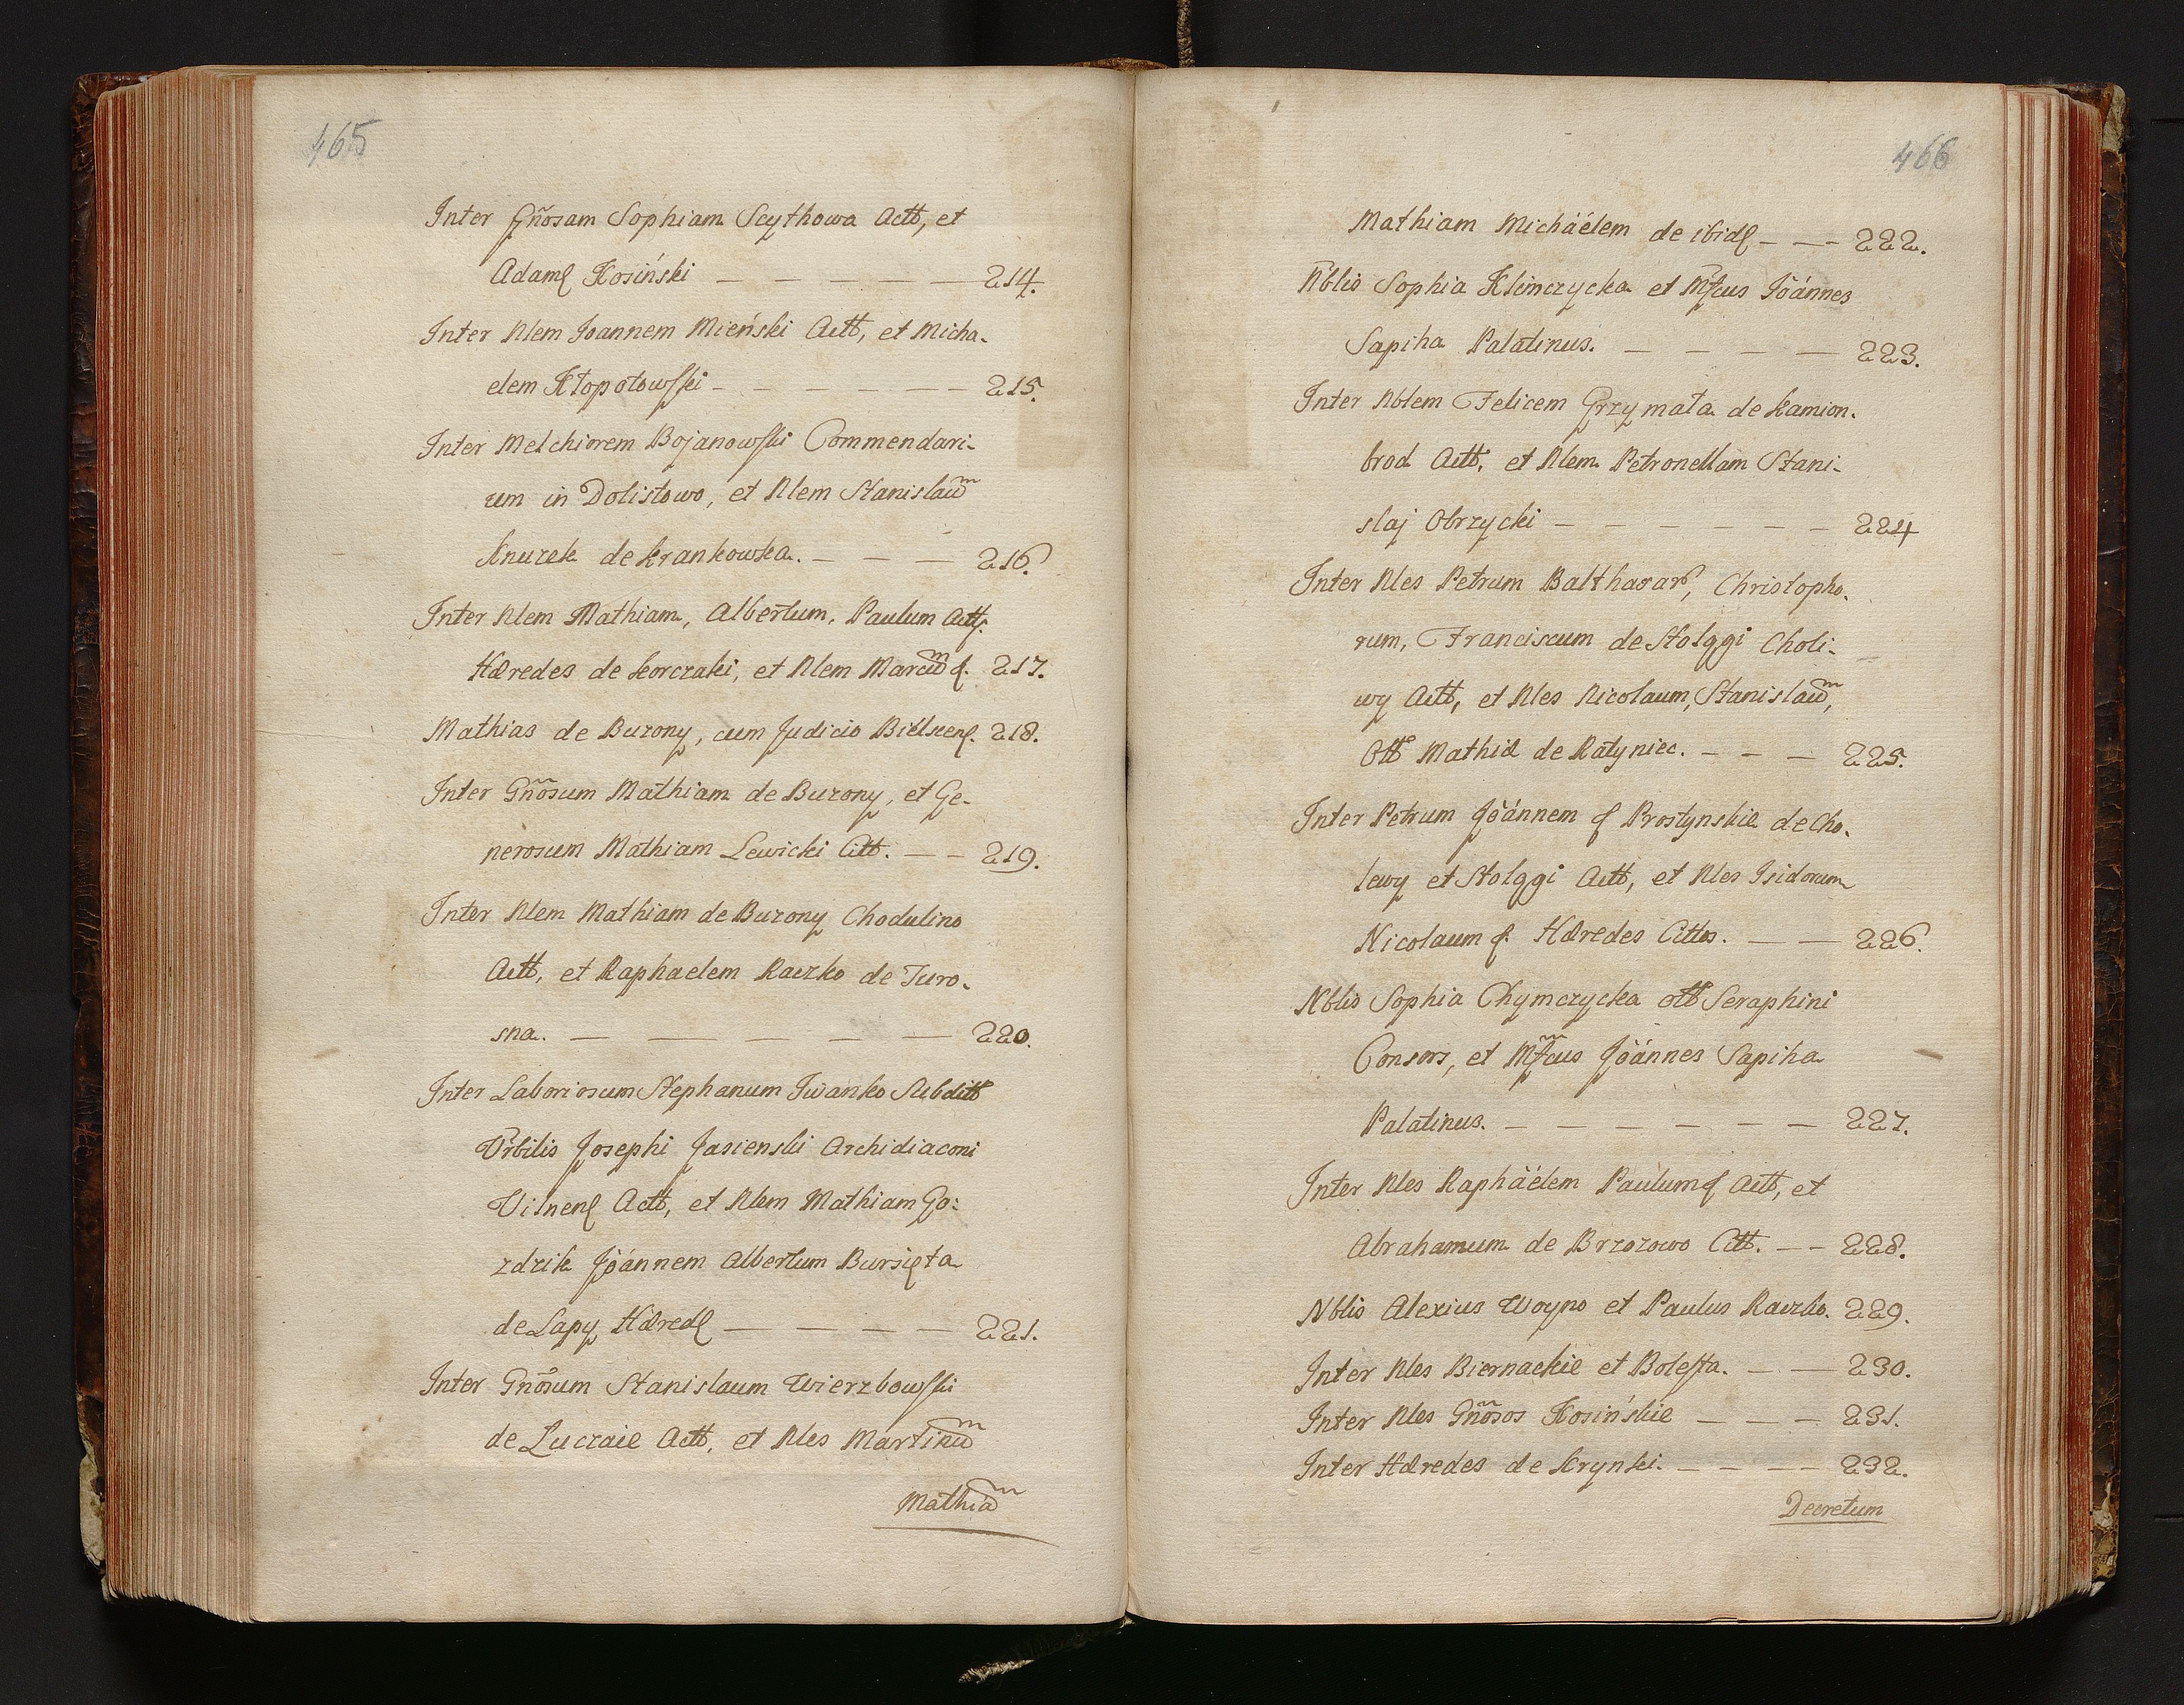 465
Inter Gñosam Sophiam Scythowa Actt, et
Adam Kosiński — — — — — 214.
Inter Nlem Joannem Mieński Actt, et Micha-
elem Kłopotowski — — — — — — 215.
Inter Melchiorem Bojanowski Commendari-
um in Dolistowo, et Nlem Stanislaum
Knurek de Krankowka. — — — 216.
Inter Nlem Mathiam, Albertum, Paulum Actt.
Hæredes de Korczaki, et Nlem Marcum 217.
Mathias de Buzony, cum Judicio Bielnen. 218.
Inter Gñosum Mathiam de Buzony, et Ge-
nerosum Mathiam Lewicki Citt. — — 219.
Inter Nlem Mathiam de Buzony Chodulino
Actt, et Raphaelem Raczko de Turo-
sna. — — — — — 220.
Inter Laboriosum Stephanum Iwanko Subditt
Vrbilis Josephi Jasienski Archidiaconi
Vilnen Actt, et Nlem Mathiam Go:
zdzik Joánnem Albertum Bursięta
de Lapy Hæred — — — — 221.
Inter Gñosum Stanislaum Wierzbowski
de Luczaie Actt, et Nles Martinum
Mathiam
466
Mathiam Michäélem de ibid — — 222.
Nblis Sophia Klimczycka et Mfcus Joánnes
Sapiha Palatinus. — — — — 223.
Inter Nblem Felicem Grzymała de Kamion-
brod Actt, et Nlem Petronellam Stani-
slaj Obrzycki — — — — — — 224
Inter Nles Petrum Balthasar, Christopho-
rum, Franciscum de Stolggi Choli-
wy Actt, et Nles Nicolaum, Stanislaum,
Ott Mathiæ de Ratyniec. — — — 225.
Inter Petrum Joánnem Prostynskie de Cho-
lewy et Stolggi Actt, et Nles Isidorum
Nicolaum Hæredes Cittos. — — 226.
Nblis Sophia Chymczycka ott Seraphini
Consors, et Mfcus Joánnes Sapiha
Palatinus. — — — — — — 227.
Inter Nles Raphäélem Paulum Actt, et
Abrahamum de Brzozowo Citt. — — 228.
Nblis Alexius Woyno et Paulus Raczko. 229.
Inter Nles Biernackie et Bolesta. — — 230.
Inter Nles Gñosos Kosińskie — — — 231.
Inter Hæredes de Krynki. — — — — 232.
Decretum